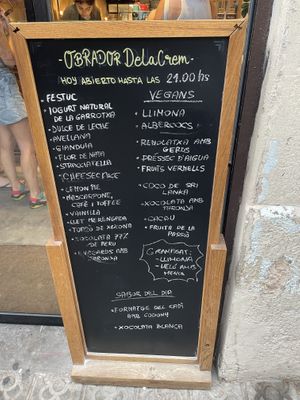 OBRADOR DELACREM
HOY ABIERTO HASTA LAS 21.00 hs
• FESTUC
• IOGURT NATURAL
DE LA GARROTXA
• DULCE DE LECHE
• AVELLANA
• GIANDUIA
• FLOR DE NATA
• STRACCIATELLA
• CHEESECAKE
• LEMON PIE
• MASCARPONE,
CAFÈ I TOFFEE
• VAINILLA
• LLET MERENGADA
• TORRÓ DE XIXONA
• XOCOLATA 77%
DE PERU
TARONJA
VEGANS
• LLIMONA
• ALBERCOCS
• REMOLATXA AMB
GERDS
• PRESSEC D'AIGUA
• FRUITS VERMELLS
• COCO DE SRI
LANKA
• XOCOLATA AMB
TARONJA
• CACAU
• FRUITA DE LA
PASSIÓ
GRANISSAT:
- LLIMONA
- MELÓ AMB
MENTA
SABOR DEL DIA
• FORMATGE DEL CADÍ
AMB CODONY
• XOCOLATA BLANCA